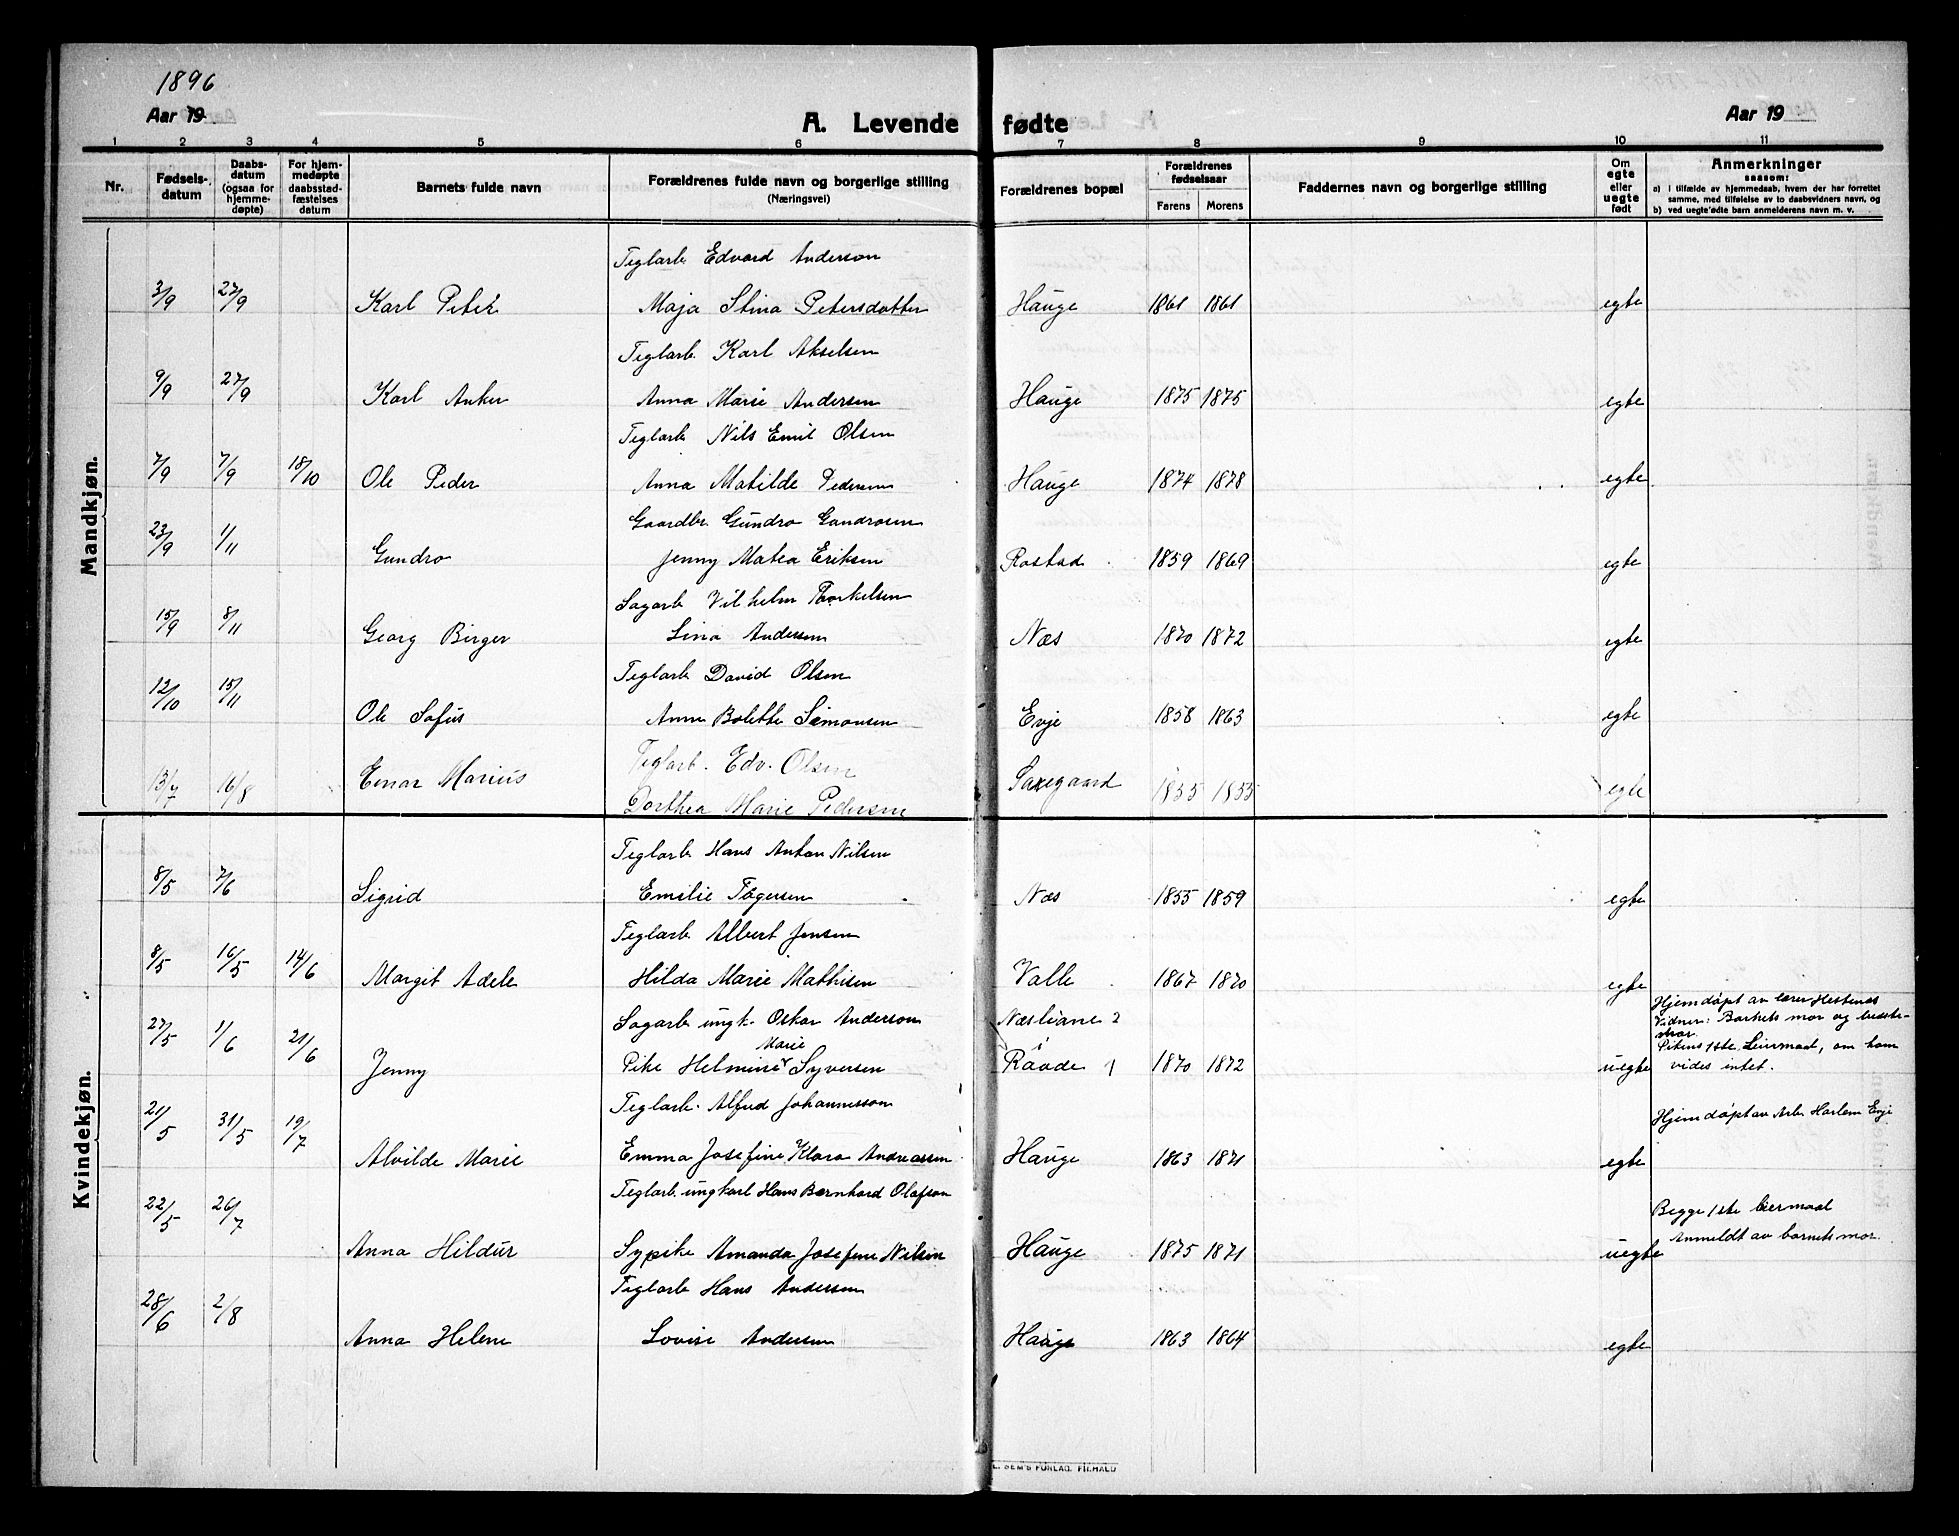 1896
Aar 19
A. Levende fødte
Aar 19
1 2 3 4 5 6 7 8 9 10 11
Nr.
Fødselsdatum
Daabsdatum (ogsaa for hjemmedøpte)
For hjemmedøpte daabsstadfæstelses datum
Barnets fulde navn
Forældrenes fulde navn og borgerlige stilling
(Næringsvei)
Forældrenes bopæl
Forældrenes fødselsaar
Farens Morens
Faddernes navn og borgerlige stilling
Om egte eller uegte født
Anmerkninger
saasom:
a) i tilfælde av hjemmedaab, hvem der har forrettet
samme, med tilføielse av to daabsvidners navn, og
b) ved uegte fødte barn anmelderens navn m. v.
Mandkjøn.
Teglarb. Edvard Anderson
3/9 27/9 Karl Peter Maja Stina Petersdotter Hauge 1861 1861 egte
Teglarb. Karl Akselsen
9/9 27/9 Karl Anker Anna Marie Andersen Hauge 1875 1875 egte
Teglarb Nils Emil Olsen
7/9 7/9 18/10 Ole Peder Anna Matilde Pedersen Hauge 1874 1878 egte
Gaardbr. Gundro Gundrosen
23/9 1/11 Gundro Jenny Matea Eriksen Rostad 1859 1869 egte
Sagarb Vilhelm Torkelsen
15/9 8/11 Georg Birger Lina Andersen Næs 1870 1872 egte
Teglarb David Olsen
12/10 15/11 Ole Sofus Anne Bolette Simonsen Evje 1858 1863 egte
Teglarb. Edv. Olsen
13/7 16/8 Einar Marius Dorthea Marie Pedersen Saxegaard 1855 1855 egte
Kvindekjøn.
Teglarb Hans Anton Nilsen
8/5 7/6 Sigrid Emilie Tøgersen Næs 1855 1859 egte
Teglarb Albert Jensen
8/5 16/5 14/6 Margit Adele Hilda Marie Mathisen Valle 1867 1870 egte
Hjemdøpt av lærer Hestenæs
Sagarb ungk. Oskar Anderson Næsliane 2
Vidner: Barnets mor og bedste-
Marie i
27/5 1/6 21/6 Jenny Pike Helmine Syversen Raade 1 1870 1872 uegte
Pikens 1ste Leiermaal, om ham
vides intet.
Teglarb. Alfred Johannesson
Hjemdøpt av Arb. Harlem Evje
21/5 31/5 19/7 Alvilde Marie Emma Josefine Klara Andreassen Hauge 1863 1871 egte
Teglarb. ungkarl Hans Bernhard Olafson
Begge 1ste leiermaal
Anmeldt av barnets mor.
22/5 26/7 Anna Hildur Sypike Amanda Josefine Nilsen Hauge 1875 1871 uegte
Teglarb Hans Andersen
28/6 2/8 Anna Helene Lovise Andersen Hauge 1863 1864 egte
E. SEM'S FORLAG, F.HALD